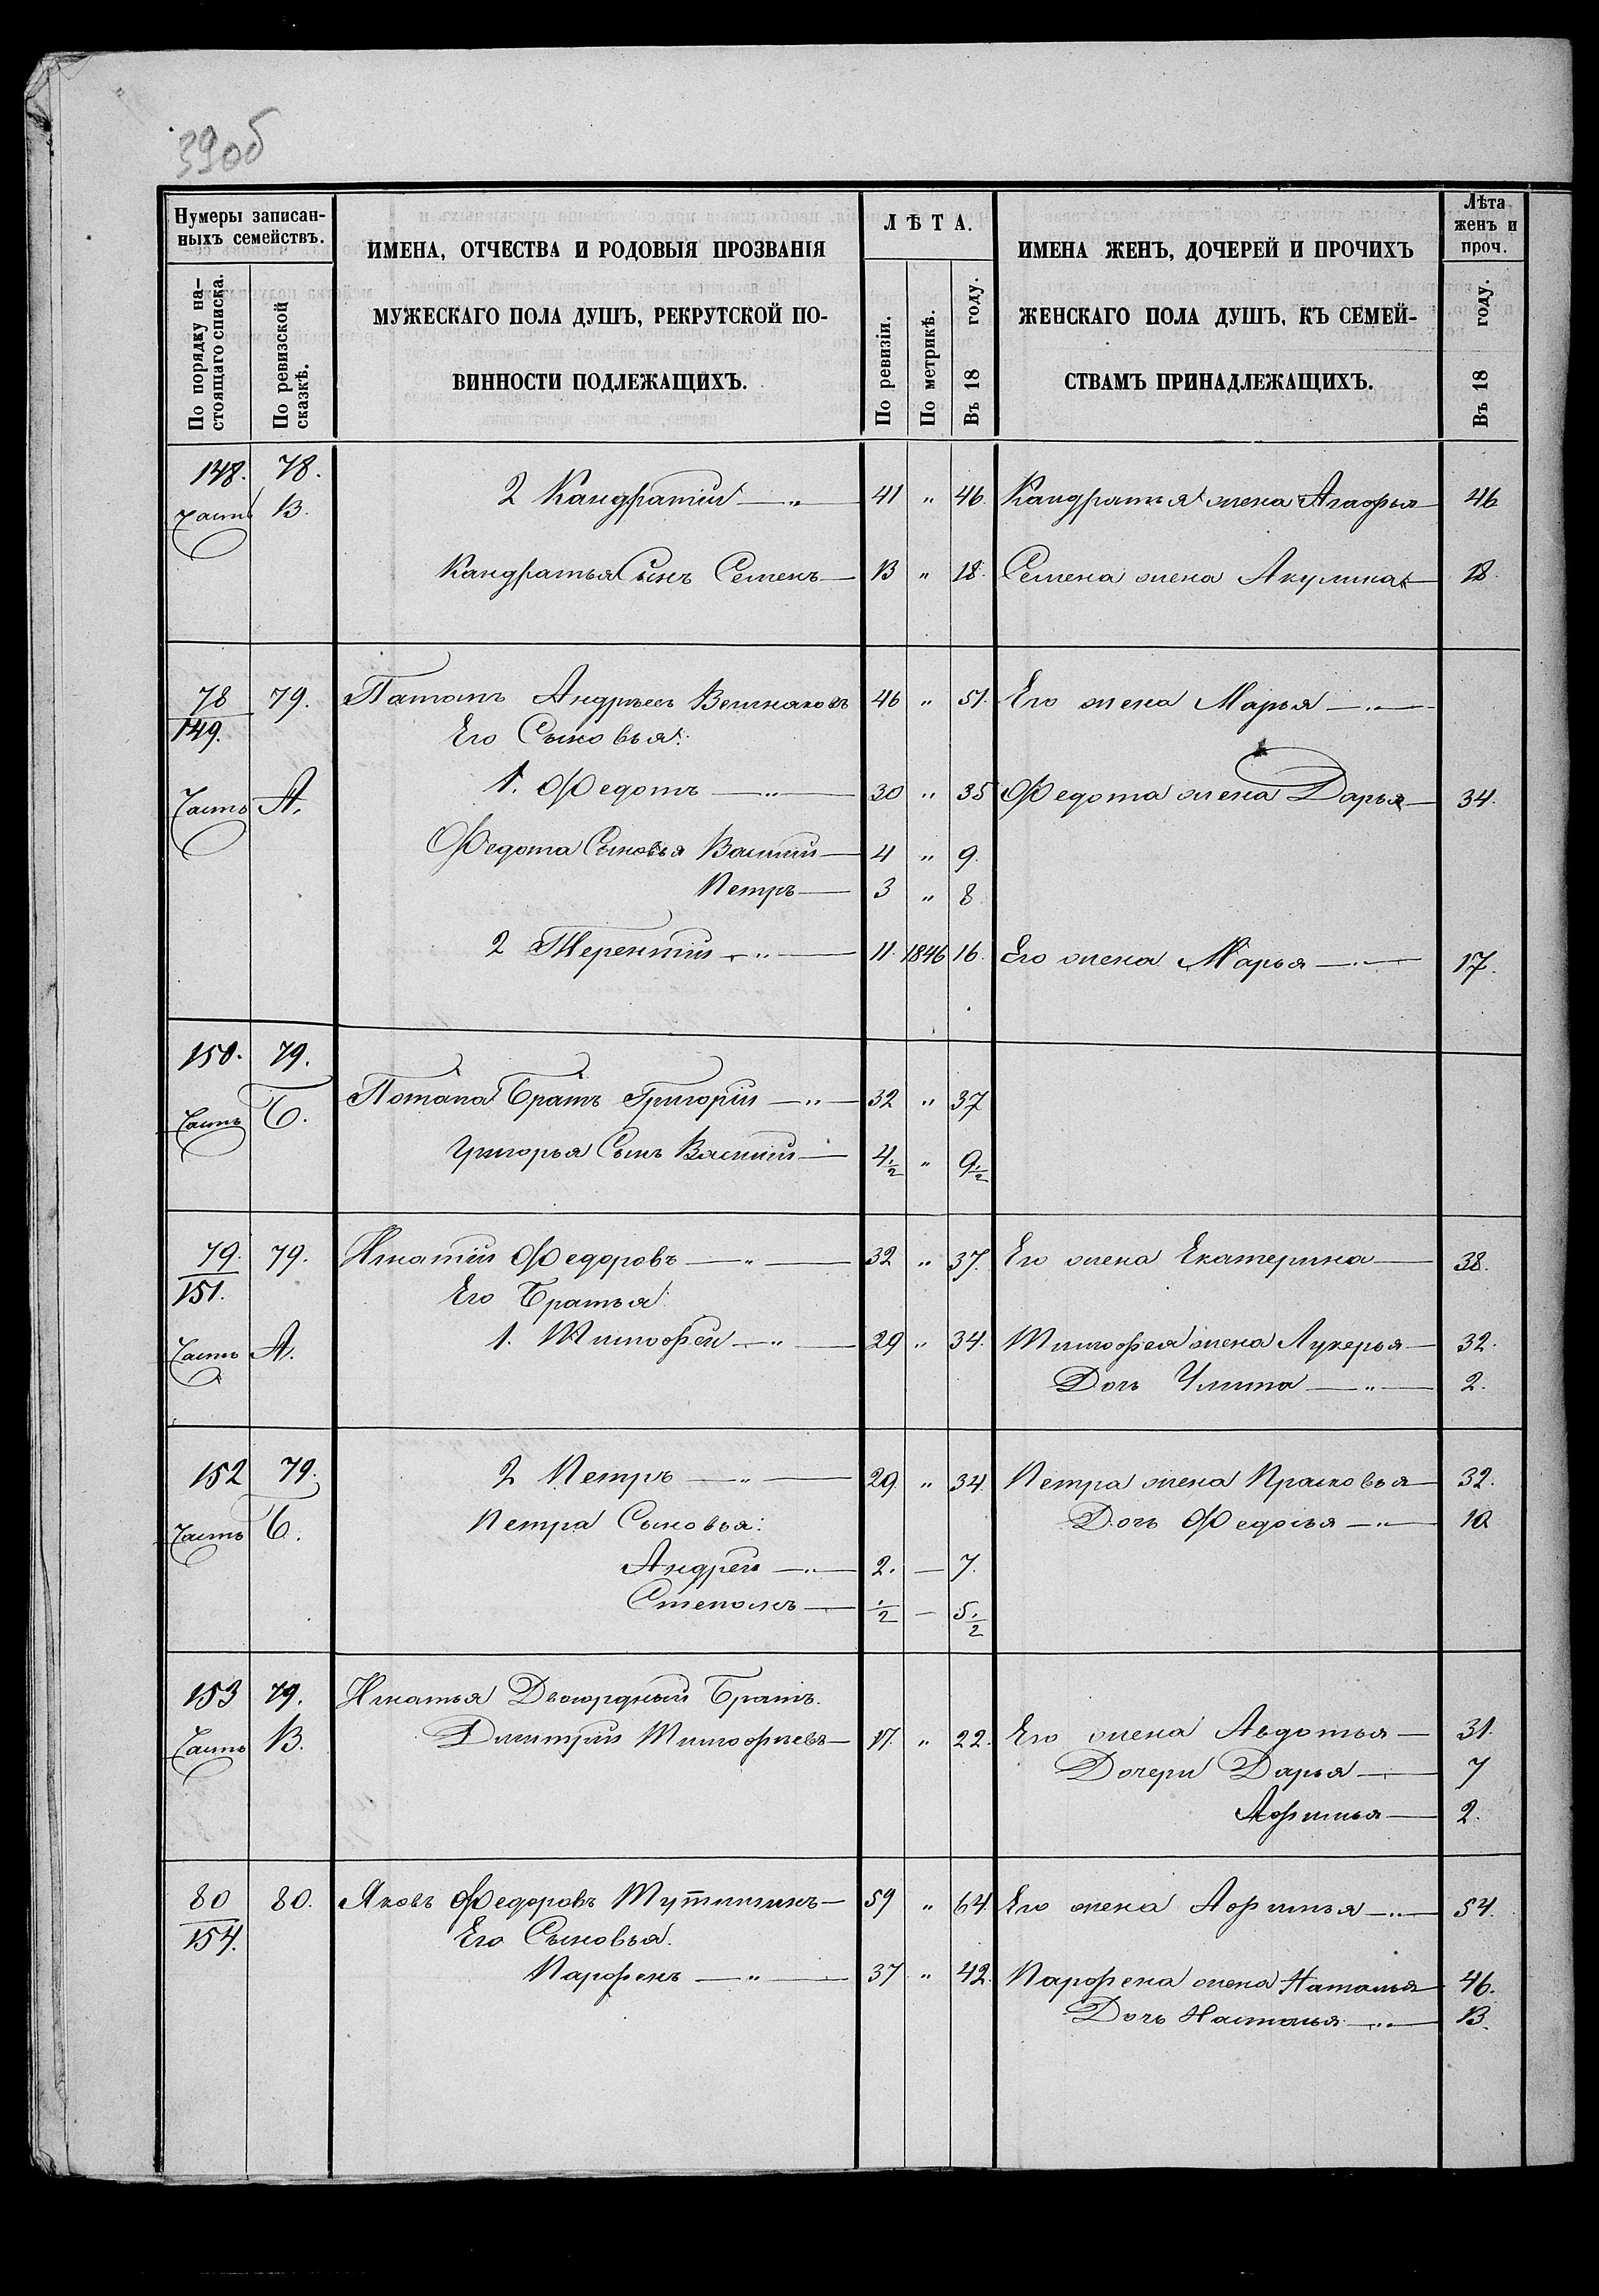 39об
Нумеры записан-
ныхъ семействъ.
По порядку на-
стоящаго списка.
По ревизской
сказкѣ.
ИМЕНА, ОТЧЕСТВА И РОДОВЫЯ ПРОЗВАНІЯ
МУЖЕСКАГО ПОЛА ДУШЪ, РЕКРУТСКОЙ ПО-
ВИННОСТИ ПОДЛЕЖАЩИХЪ.
ЛѢТА.
По ревизіи.
По метрикѣ.
Въ 18 году.
ИМЕНА ЖЕНЪ, ДОЧЕРЕЙ И ПРОЧИХЪ
ЖЕНСКАГО ПОЛА ДУШЪ, КЪ СЕМЕЙ-
СТВАМЪ ПРИНАДЛЕЖАЩИХЪ.
Лѣта
женъ и
проч.
Въ 18 году.
148. 78. 2 Кандратій — „ — 41 „ 46. Кандратья жена Агафья — 46
Часть В.
Кандратья Сынъ Семенъ — 13 „ 18. Семена жена Акулина — 18.
78 79. Патапъ Андрѣевъ 46 „ 51. Его жена Марья — „ —
149. Его Сыновья:
Часть А. 1. Федотъ — „ — 30 „ 35 Федота жена Дарья — 34.
Федота Сыновья Василій — 4 „ 9.
Петръ — 3 „ 8
2 Терентій — „ — 11. 1846 16. Его жена Марья — „ — 17.
150. 79.
Часть Б. Потапа Братъ Григорій — „ — 32 „ 37
Григорья Сынъ Василій — 4 1/2 „ 9 1/2
79. 79. Игнатій Федоровъ — „ — 32 „ 37. Его жена Екатерина — 38.
151. Его Братья
Часть А. 1. Тимофей — „ — 29 „ 34. Тимофея жена Лукерья — 32.
Дочь Улита — „ — 2.
152 79. 2 Петръ — „ — 29. „ 34. Петра жена Прасковья — 32.
Часть Б. Петра Сыновья: Дочь Федосья — „ — 10
Андрей — „ — 2. — 7.
Степанъ — 1/2 — 5 1/2
153 79. Игнатья Двоюрдный Братъ.
Часть В. Дмитрий Тимофѣевъ — 17. „ 22. Его жена Авдотья — 31.
Дочери Дарья — 7
Афимья — 2.
80 80. Яковъ Федоровъ 59 „ 64. Его жена Афимья — „ — 54.
154. Его Сыновья.
Парфенъ — „ — 37 „ 42. Парфена жена Наталья 46.
Дочь Настасья — „ — 13.